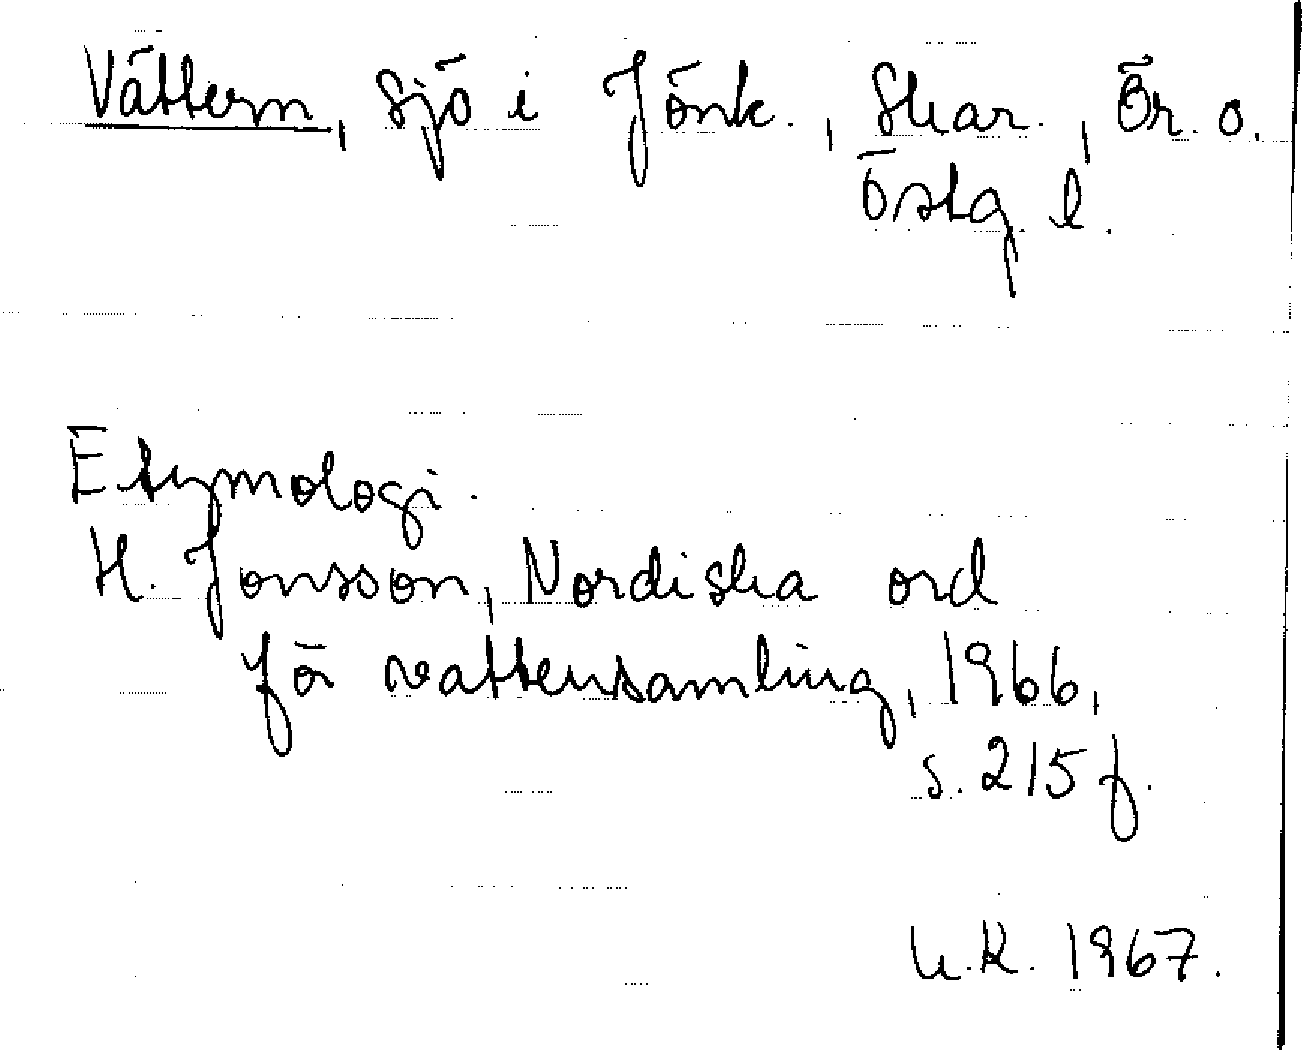 Vättern, sjö i Jönk., Skar., Ör. o.
Östg. l.
Etymologi.
H. Jonsson, Nordiska ord
för vattensamling, 1966,
s. 215 f.
U.K. 1967.